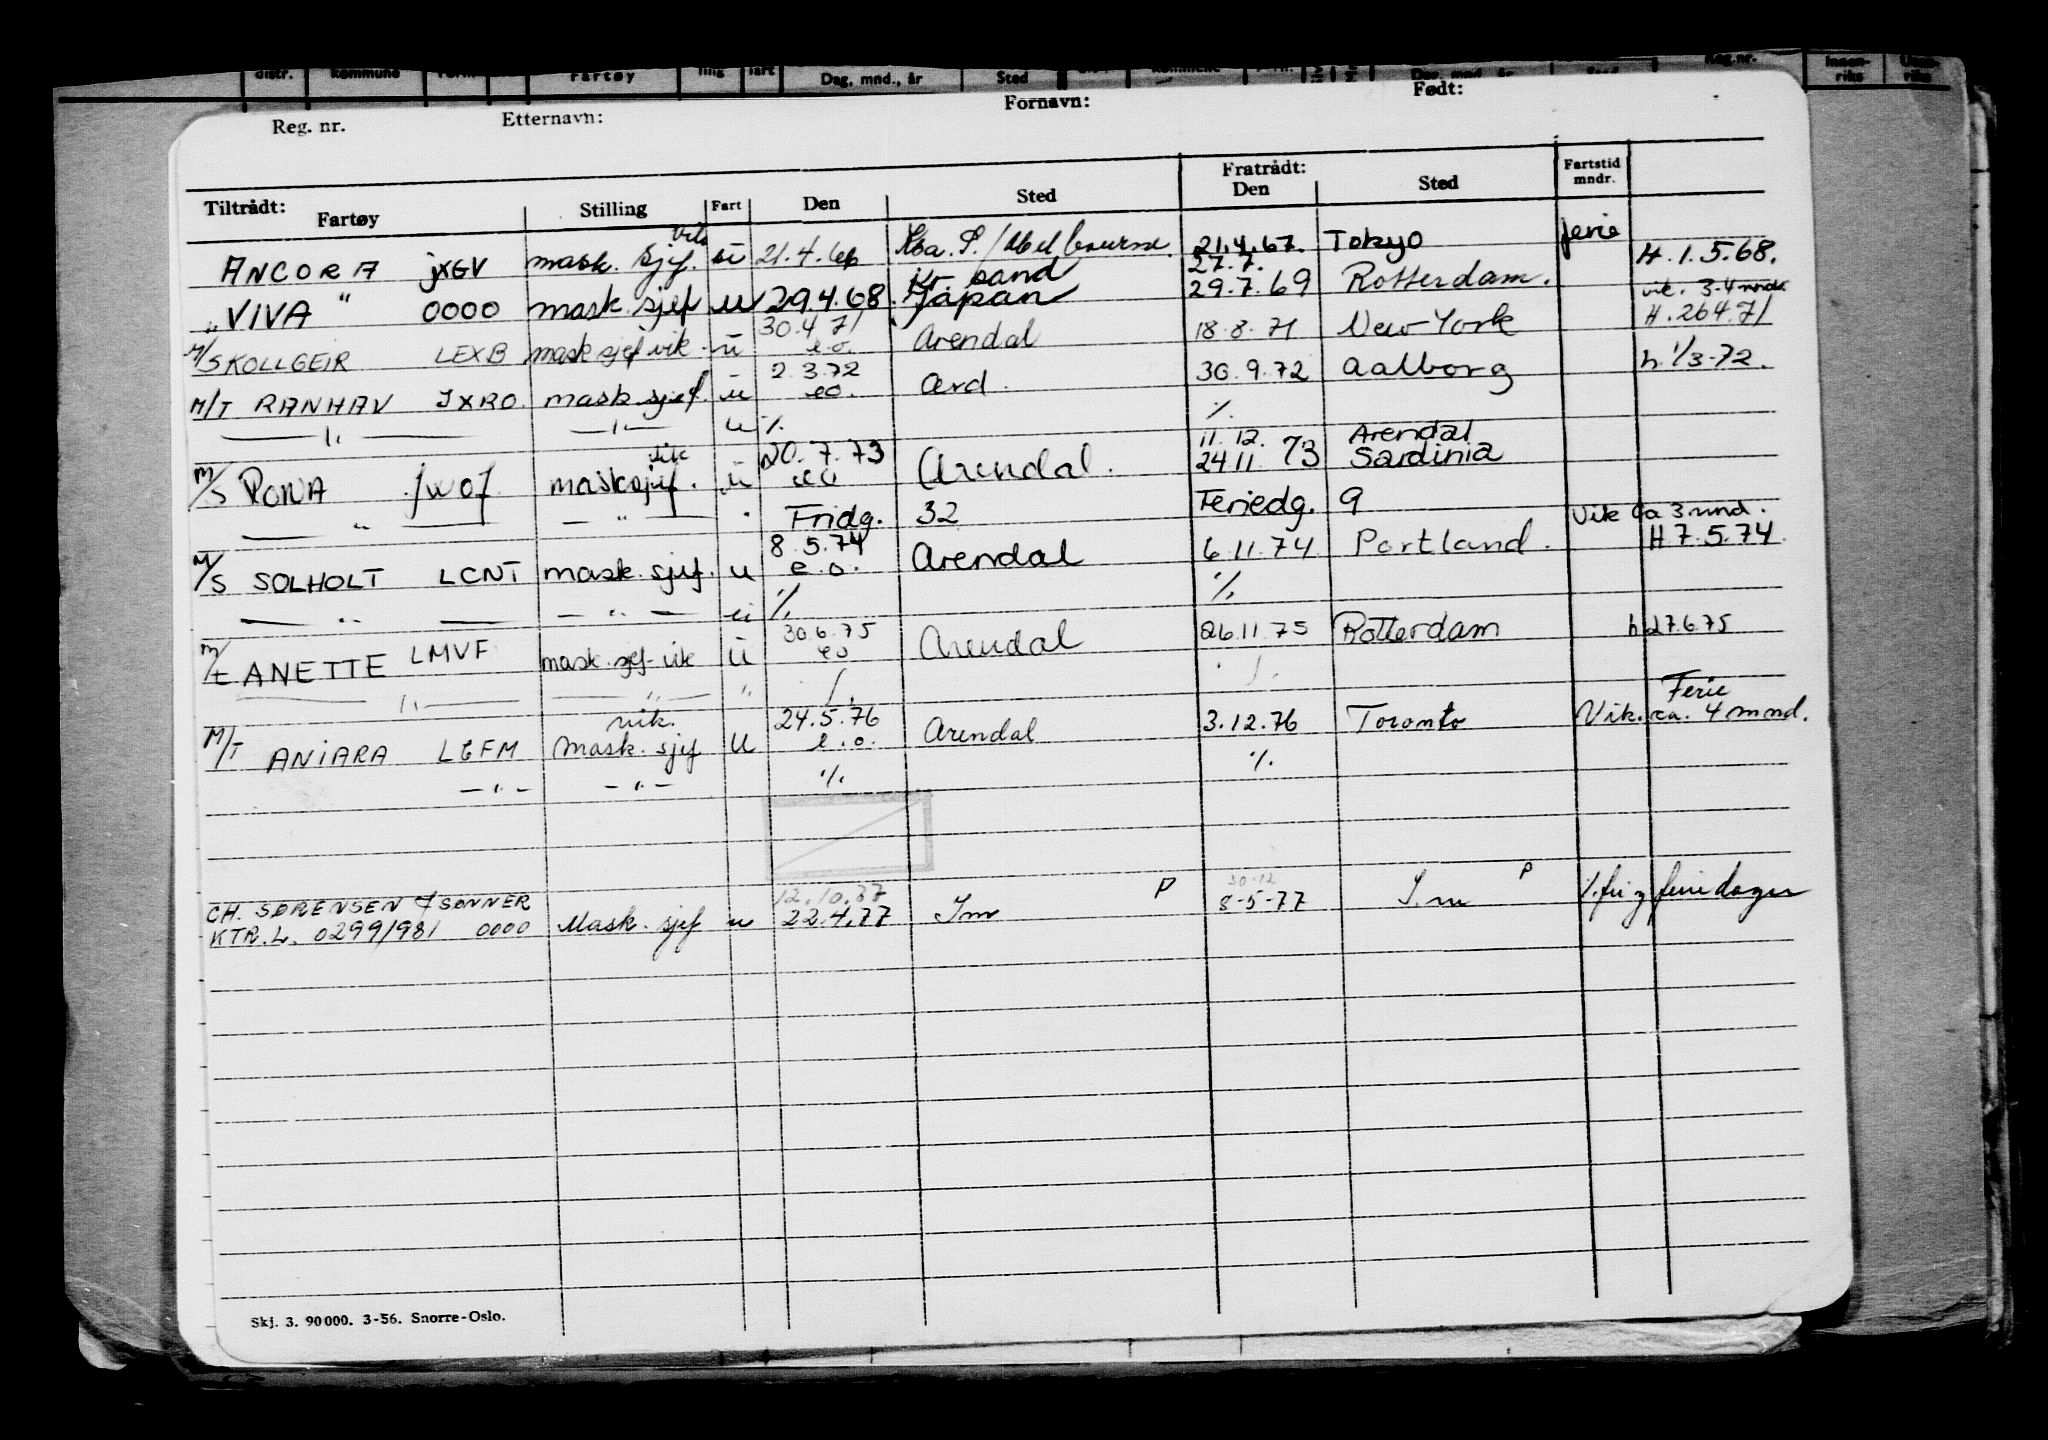 distr. kommune Fartøy fart Dag, mnd., år Sted Innen-riks
Reg. nr. Etternavn: Fornavn: Født:
Tiltrådt: Fratrådt: Fartstid mndr.
Fartøy Stilling Fart Den Sted Den Sted
ANCORA JXGV mask. sjef. vik ü 21.4.66 Kra. S./Melbourne 21.4.67. Tokyo ferie
" VIVA " 0000 mask sjef u 29.4.68. Kr. sand Japan 27.7. 29.7.69 Rotterdam. H. 1.5.68.
vik. 3-4 mndr.
M/S KOLLGEIR LEXB mask sjef vik ü 30.4 71 e.o. Arendal 18.8.71 New York H. 264.71
M/T RANHAV JXRO. mask sjef. ü 2.3.72 eo. Ard. 30.9.72 Aalborg h. 1/3-72.
— " — — " — u ./. ./.
M/S RONA JWOJ mask sjef. vik ü 20.7.73 eo Arendal. 11.12. 24.11. 73 Arendal Sardinia
— " — — " — Fridg. 32 Feriedg. 9 Vik Ca 3 mnd.
M/S SOLHOLT LCNT mask. sjef. u 8.5.74 e.o. Arendal 6.11.74 Portland. H 7.5.74.
— " — — " — ü ./. ./.
M/t ANETTE LMVF mask. sjef- vik ü 30.6.75 eo Arendal 26.11.75 Rotterdam h 27.6.75
— " — — " — " ./. ./.
Ferie
M/T ANIARA LGFM vik. Mask. sjef U 24.5.76 e.o. Arendal 3.12.76 Toronto Vik. ca. 4 mnd.
— " — — " — ./. ./.
12.10.37 P 30.12 P
CH. SØRENSEN & SØNNER
KTR.L. 0299/981 0000 Mask. sjef u 22.4.77 8-5-77 feriedager
Skj. 3. 90000. 3-56. Snorre-Oslo.